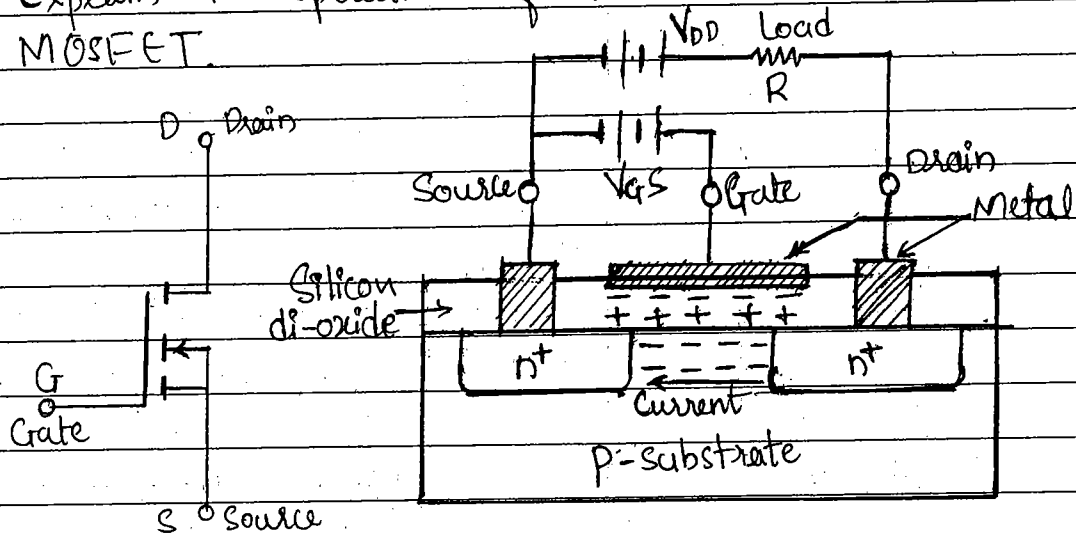 MOSFET.
VDD Load
R
D Drain
Source VGS Gate Drain
Metal
Silicon
di-oxide
- - - - -
+ + + + +
n+ n+
Current
G
Gate
P-substrate
S Source